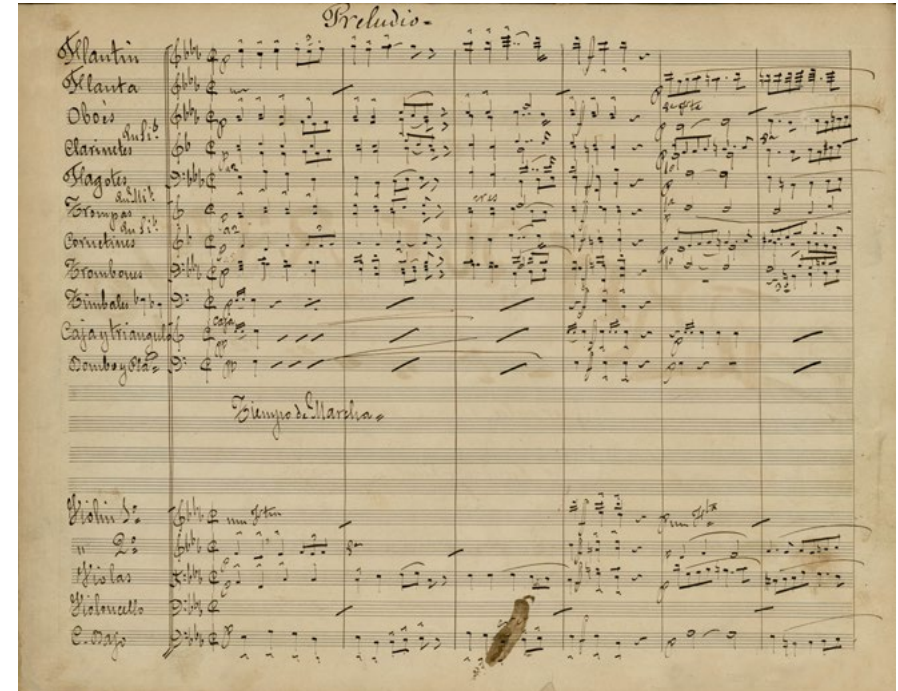 Preludio=
Flautin
Flauta
Oboès
en Si b
Clarinetes
Fagotes
en Mi b
Trompas
en Si b
Cornetines
Trombones
Timbales
Caja y triangulo
Bombo y Pla=
Tiempo de Marcha=
Violin 1º
" 2º
Violas
Violoncello
C. Bajo